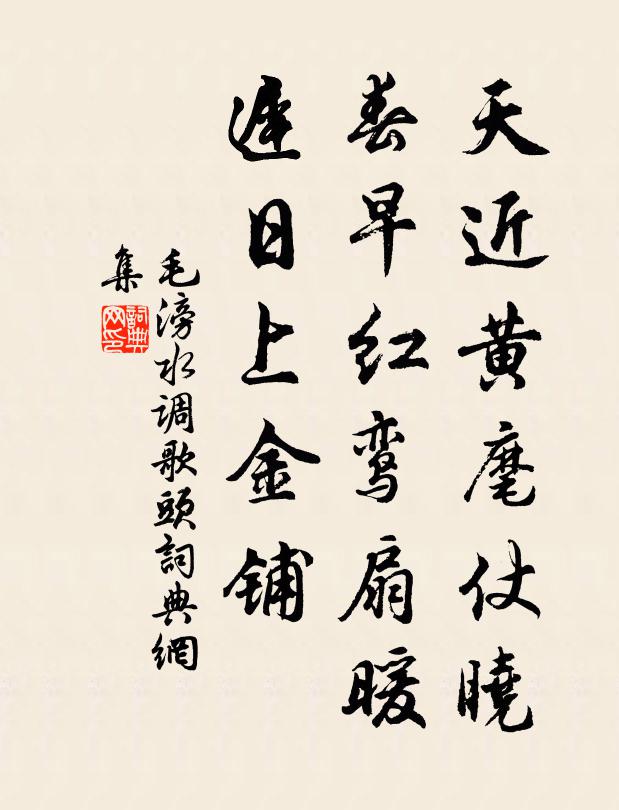 天近黄麾仗曉
春早红鸾扇暖
遲日上金铺
毛滂水调歌頭詞典網
集
詞典
网印